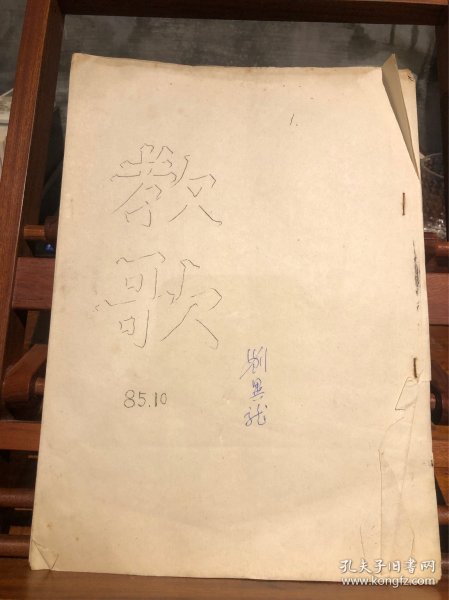 1.
教歌
刘異龙
85.10
孔夫子旧书网
www.kongfz.com